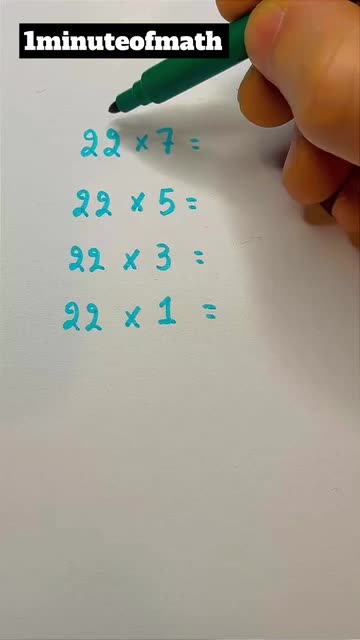 1minuteofmath
22 x 7 =
22 x 5 =
22 x 3 =
22 x 1 =